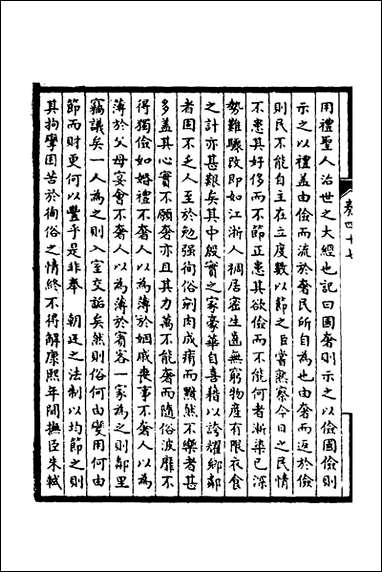 用禮聖人治世之大經也記曰國奢則示之以儉國儉則
示之以禮蓋由儉而流於奢民所自為也由奢而返於儉
則民不能自主在立度數以節之臣嘗熟察今日之民情
不患其好侈而不節正患其欲儉而不能何者漸染已深
勢難驟改即如江浙人稠居密生齒無窮物產有限衣食
之計亦甚艱矣其中殷實之家豪華自喜藉以誇耀鄉鄰
者固不乏人至於勉强徇俗剜肉成瘡而黯然不樂者甚
多蓋其心實不願奢亦且其力萬不能奢而隨俗波靡不
得獨儉如婚禮不奢人以為薄於姻戚喪事不奢人以為
薄於父母宴會不奢人以為薄於賓客一家為之則鄰里
竊議矣一人為之則入室交謫矣然則俗何由變用何由
節而財更何以豐乎是非奉 朝廷之法制以均節之則
其拘攣困苦於徇俗之情終不得解康熙年間撫臣朱軾
卷四十七